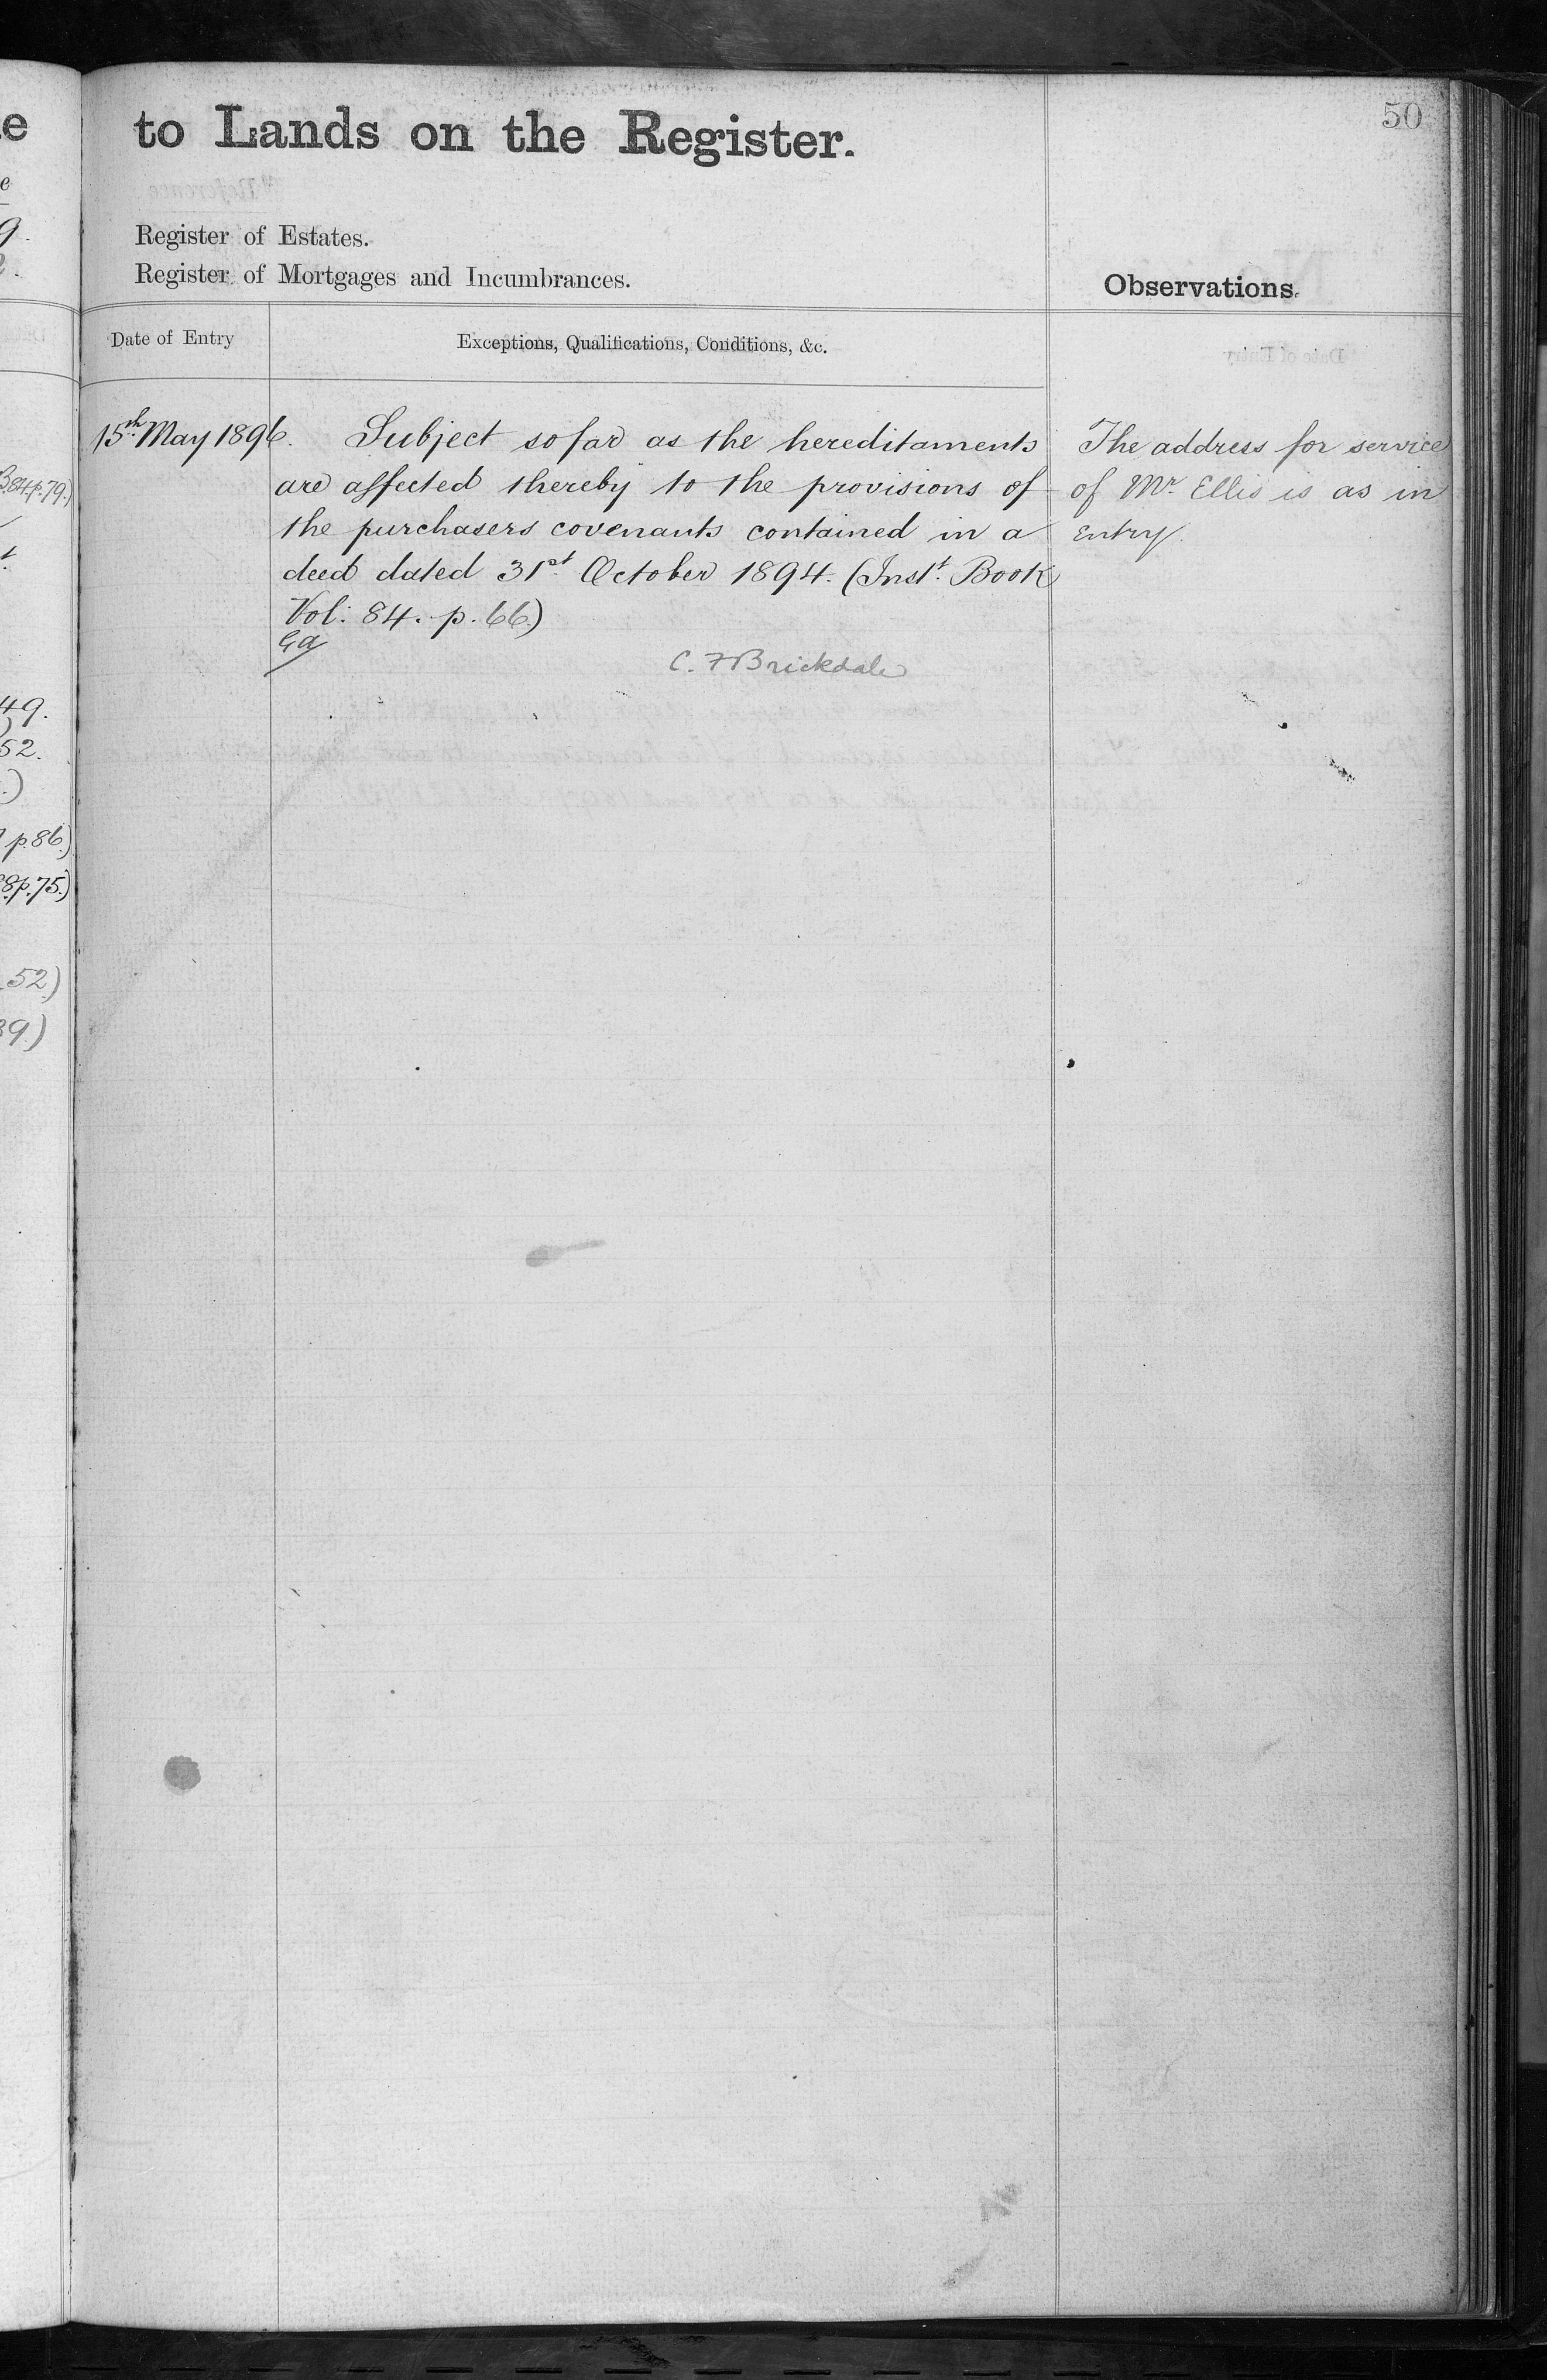 50
to Lands on the Register.
Register of Estates.
Register of Mortgages and Incumbrances.
Observations.
Date of Entry
Exceptions, Qualifications, Conditions, &c.
15th May 1896.
Subject so far as the hereditaments
are affected thereby to the provisions of
the purchasers covenants contained in a
deed dated 31st October 1894. (Inst. Book
Vol: 84. p. 66.)
C. F Brickdale
The address for service
of Mr. Ellis is as in
Entry.
e
e
9.
B.84p.79.)
49.
52.
p.86.)
8.p.75.)
52.)
39.)